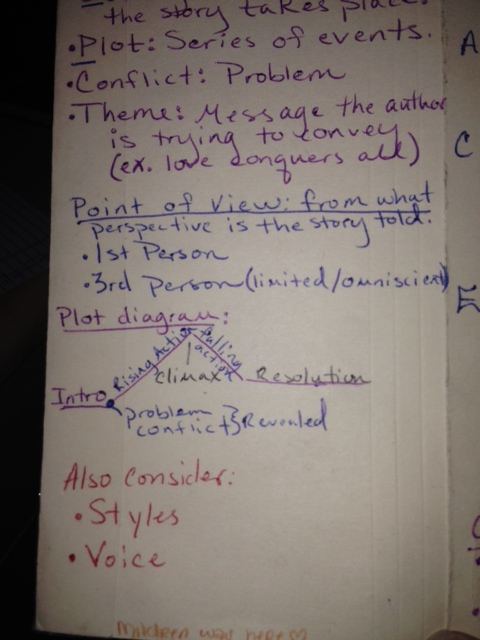 the story takes place
•Plot: Series of events.
•Conflict: Problem
•Theme: Message the author
is trying to convey
(ex. love conquers all)
Point of View: from what
perspective is the story told.
•1st Person
•3rd Person (limited/omniscient)
Plot diagram:
Rising Action
Falling
action
Climax
Resolution
Intro
problem
conflict} Revealed
Also Consider:
•Styles
•Voice
way here
A
C
E